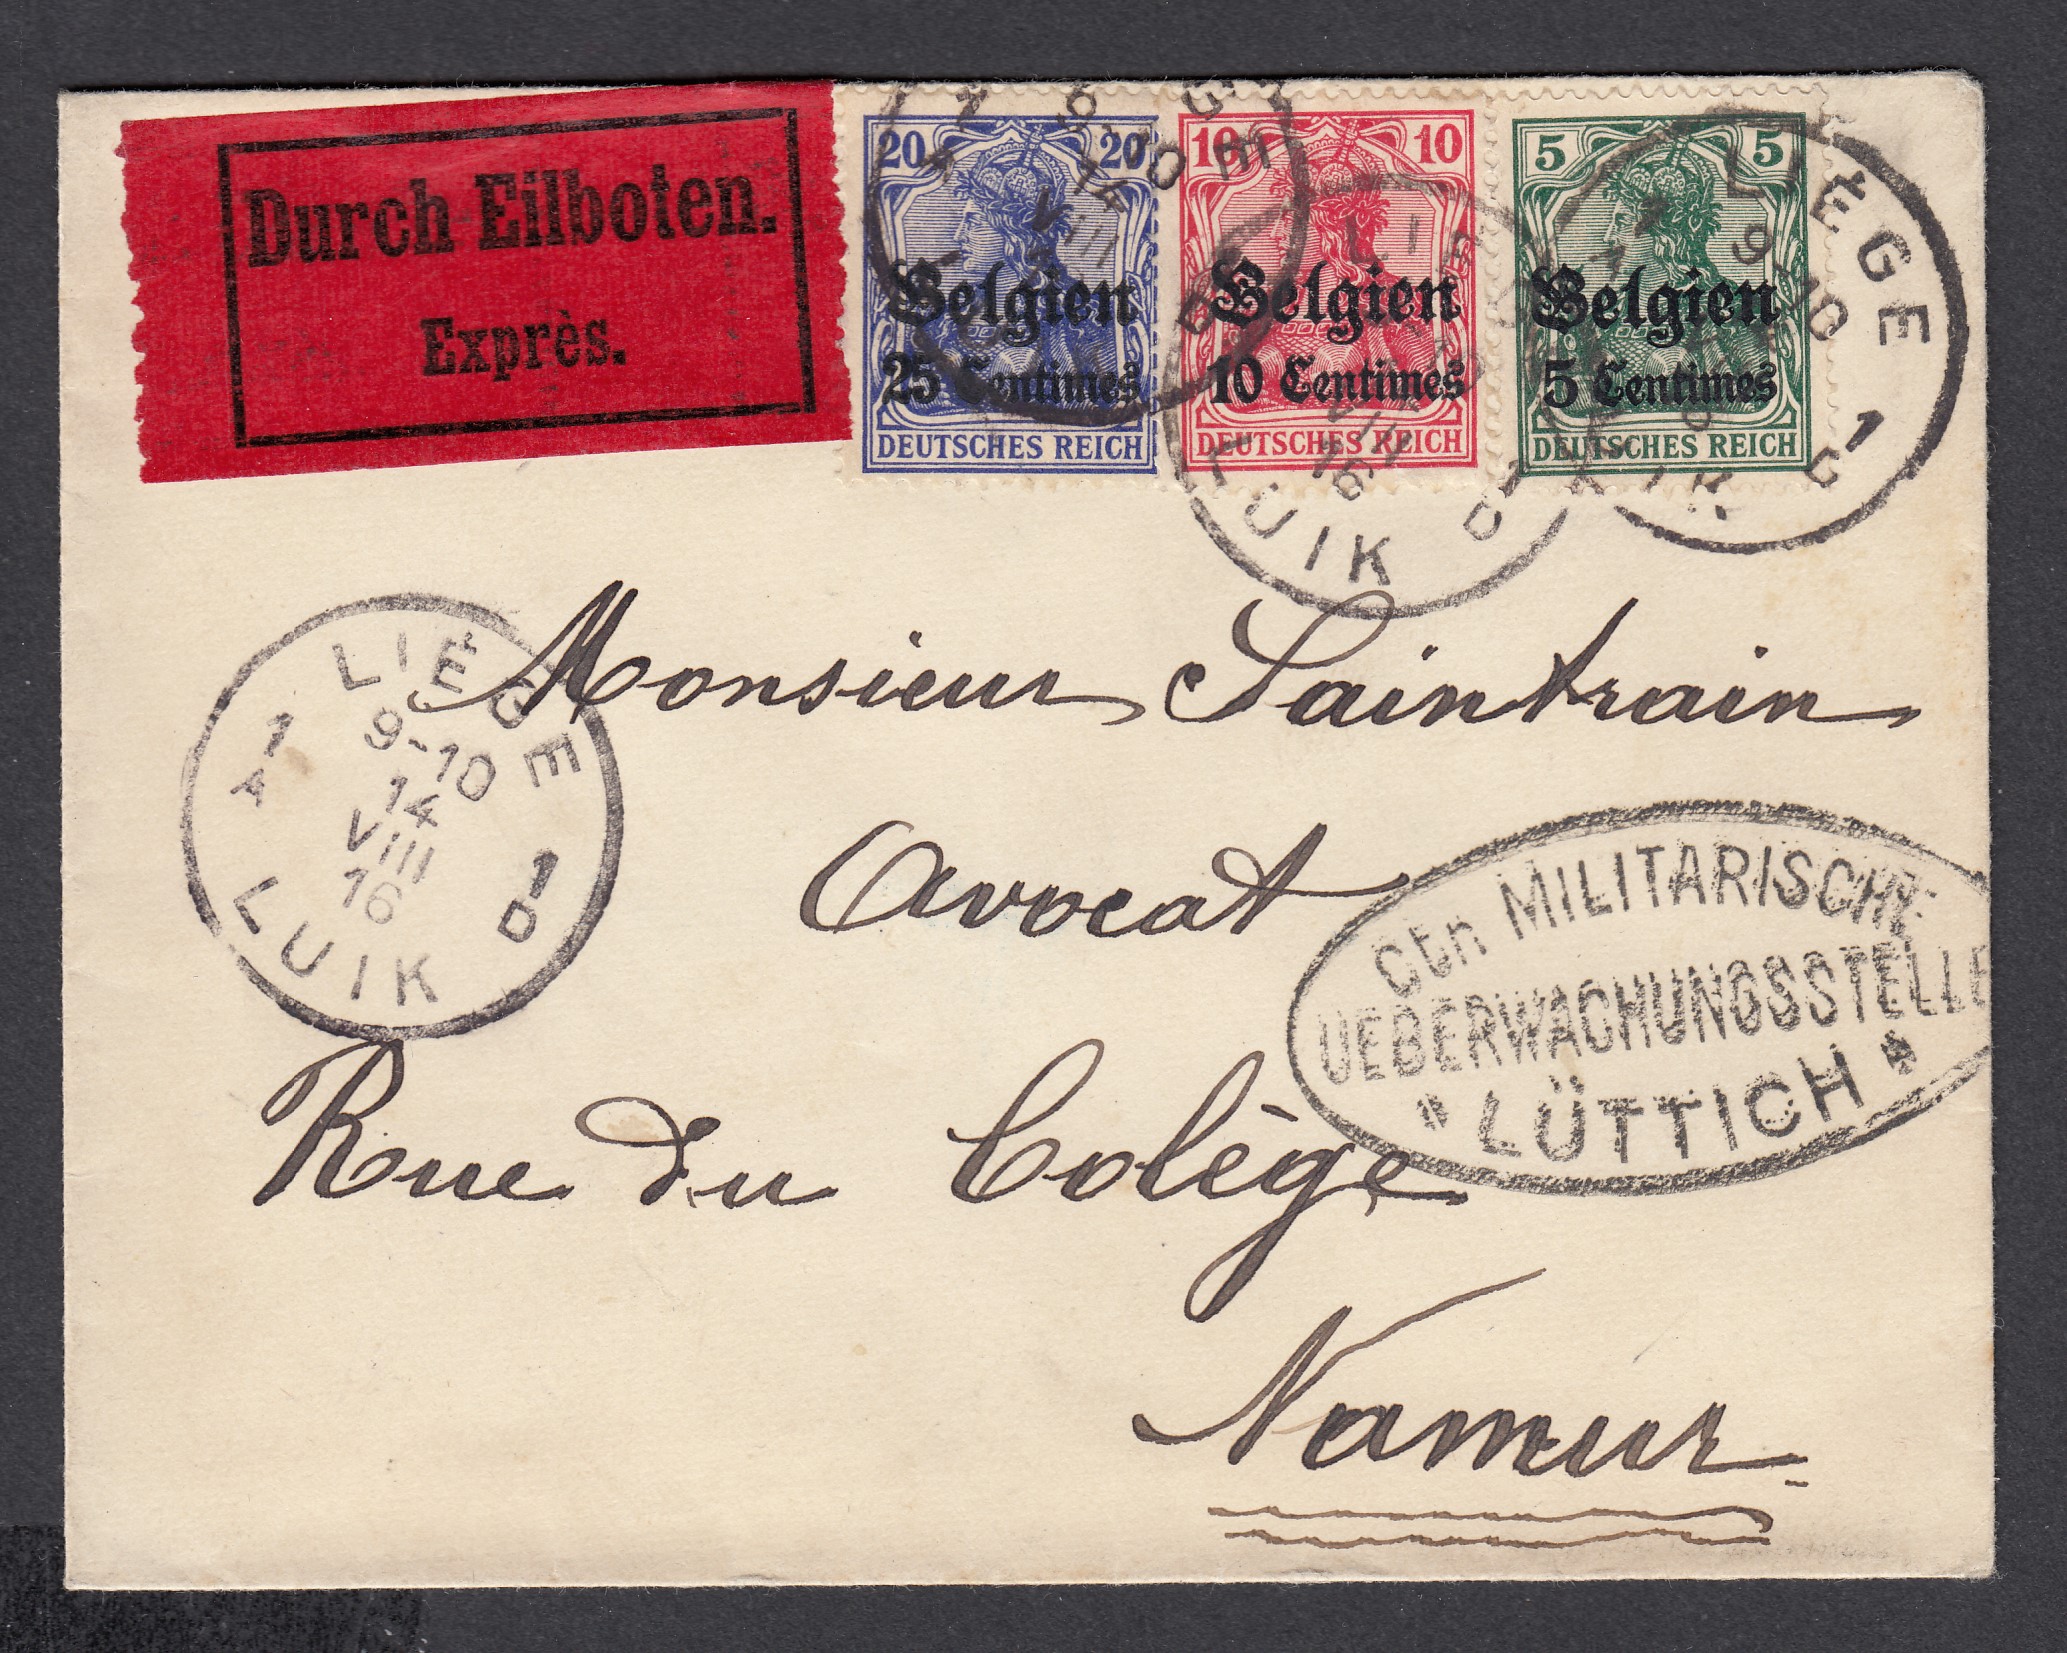 Durch Eilboten.
Exprès.
20 20
Belgien
25 Centimes
DEUTSCHES REICH
10 10
Belgien
10 Centimes
DEUTSCHES REICH
5 5
Belgien
5 Centimes
DEUTSCHES REICH
LIÉGE
9-10
1 C
LUIK
1 D
VIII
16
LIÉGE
1 A
9-10
14
VIII
16
1 D
LUIK
Monsieur Saintrain
Avocat
Rue du Colège
Namur
Ctn MILITARISCHE
UEBERWACHUNGSSTELLE
* LÜTTICH *